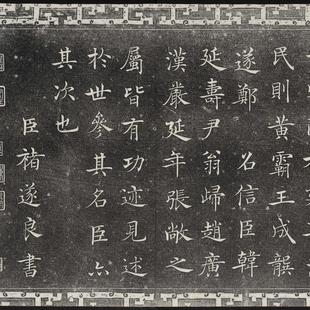 民則黃霸王成龔
遂鄭 名信臣韓
延壽尹翁歸趙廣
漢嚴延年張敞之
屬皆有功迹見述
於世參其名臣亦
其次也
臣褚遂良書